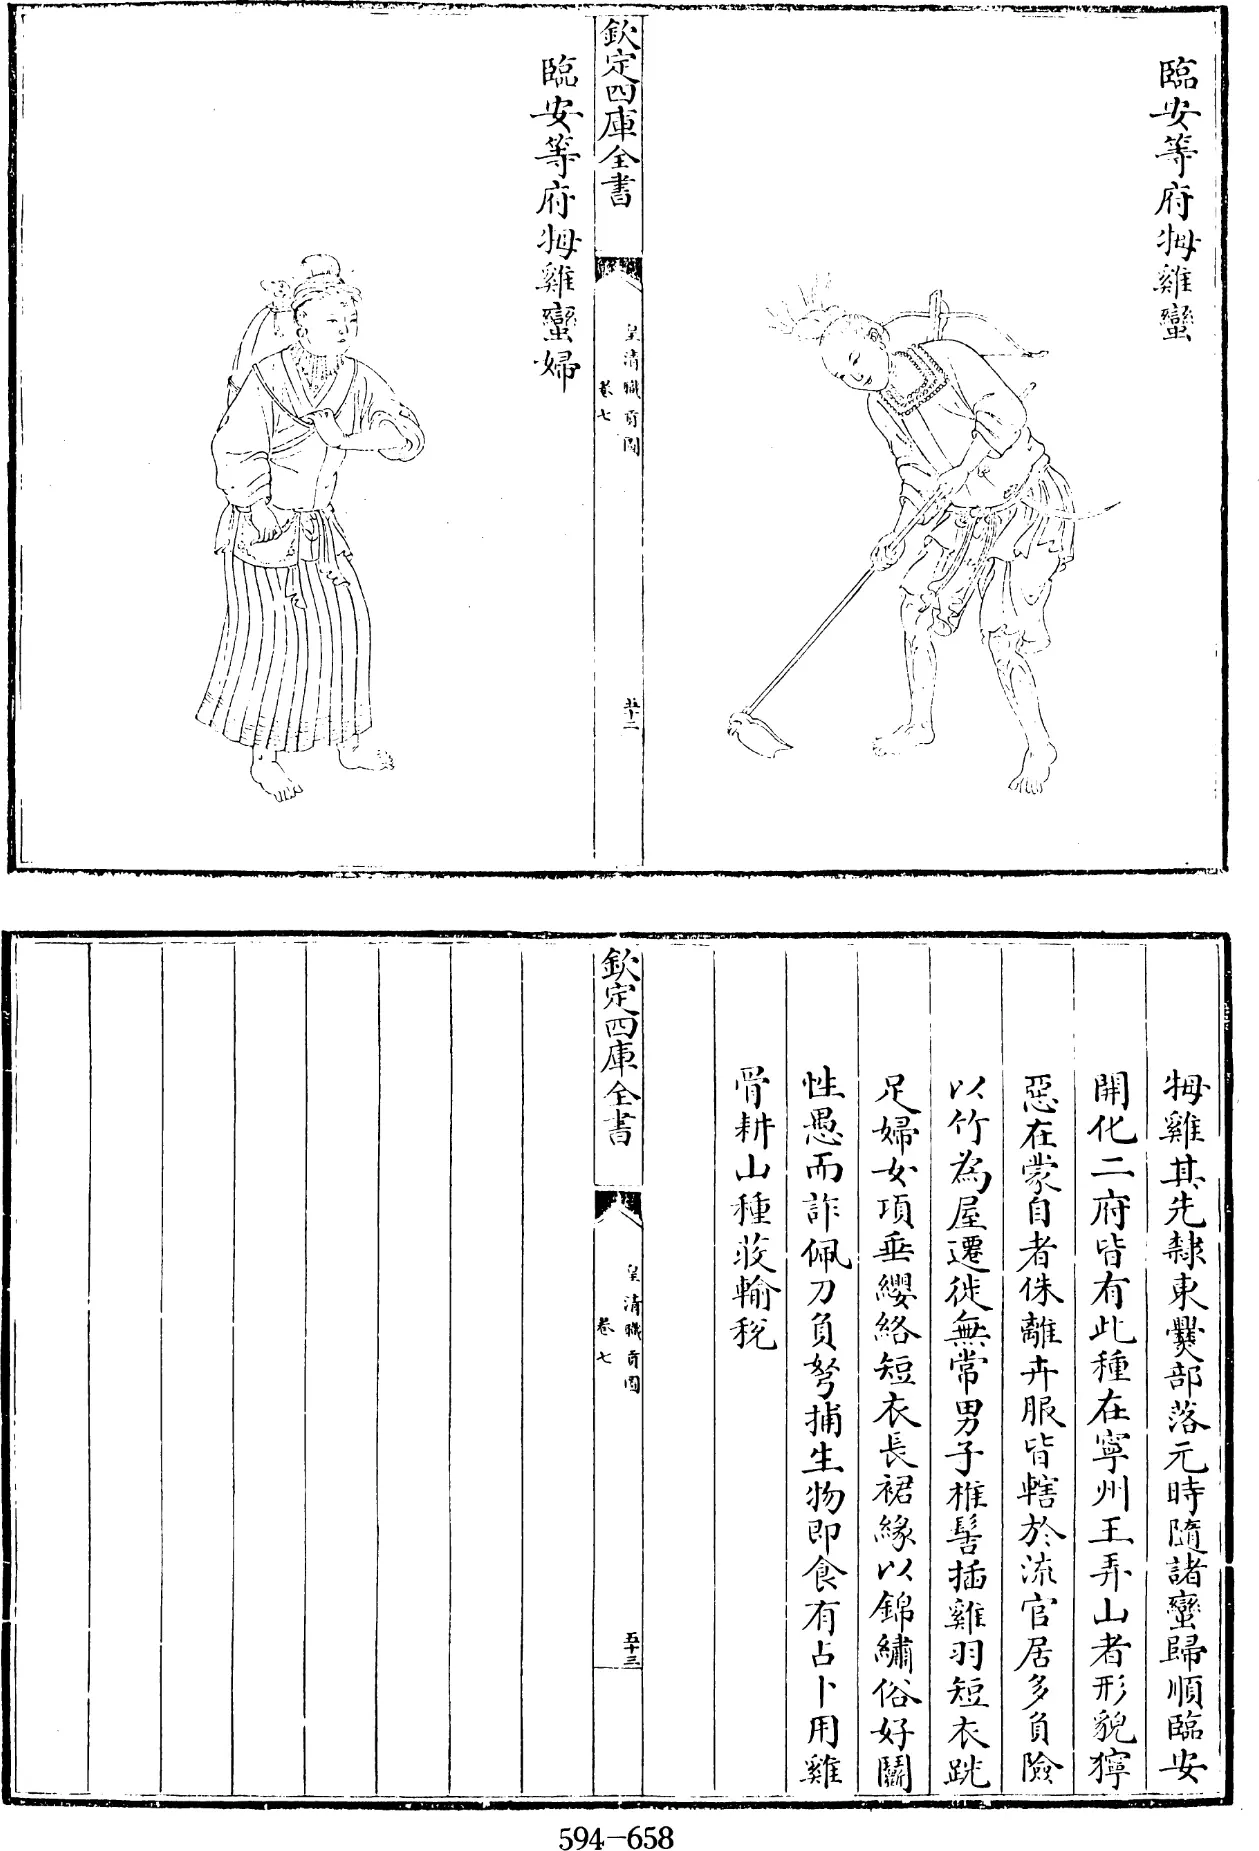 臨安等府拇雞蠻
欽定四庫全書
皇清職貢圖
卷七
五十二
臨安等府拇雞蠻婦
拇雞其先隸東爨部落元時隨諸蠻歸順臨安
開化二府皆有此種在寧州王弄山者形貌獰
惡在蒙自者侏離卉服皆轄於流官居多負險
以竹為屋遷徙無常男子椎髻插雞羽短衣跣
足婦女項垂纓絡短衣長裙緣以錦繡俗好鬭
性愚而詐佩刀負弩捕生物即食有占卜用雞
骨耕山種荍輸稅
欽定四庫全書
皇清職貢圖
卷七
五十三
594-658